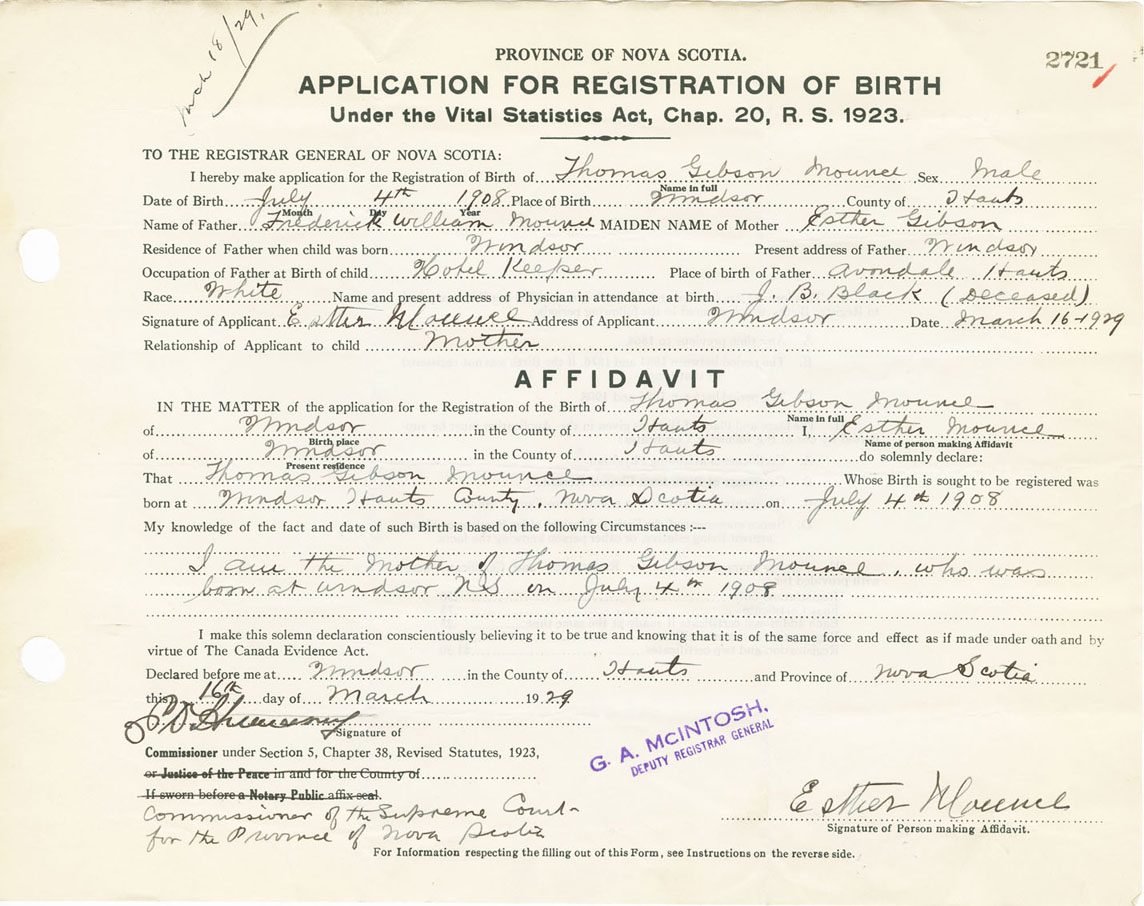 March 18/29.
PROVINCE OF NOVA SCOTIA.
2721
APPLICATION FOR REGISTRATION OF BIRTH
Under the Vital Statistics Act, Chap. 20, R. S. 1923.
TO THE REGISTRAR GENERAL OF NOVA SCOTIA:
I hereby make application for the Registration of Birth of Thomas Gibson Mounce Sex Male
Name in full
Date of Birth July 4th 1908 Place of Birth Windsor County of Hants
Month Day Year
Name of Father Frederick William Mounce MAIDEN NAME of Mother Esther Gibson
Residence of Father when child was born Windsor Present address of Father Windsor
Occupation of Father at Birth of child Hotel Keeper Place of birth of Father Avondale Hants
Race White Name and present address of Physician in attendance at birth J. B. Black (Deceased)
Signature of Applicant Esther Mounce Address of Applicant Windsor Date March 16-1929
Relationship of Applicant to child Mother
AFFIDAVIT
IN THE MATTER of the application for the Registration of the Birth of Thomas Gibson Mounce
Name in full
of Windsor in the County of Hants I, Esther Mounce
Birth place Name of person making Affidavit
of Windsor in the County of Hants do solemnly declare:
Present residence
That Thomas Gibson Mounce Whose Birth is sought to be registered was
born at Windsor Hants County, Nova Scotia on July 4th 1908
My knowledge of the fact and date of such Birth is based on the following Circumstances :---
I am the Mother of Thomas Gibson Mounce, who was
born at Windsor NS on July 4th 1908
I make this solemn declaration conscientiously believing it to be true and knowing that it is of the same force and effect as if made under oath and by
virtue of The Canada Evidence Act.
Declared before me at Windsor in the County of Hants and Province of Nova Scotia
this 16th day of March 1929
Signature of
Commissioner under Section 5, Chapter 38, Revised Statutes, 1923,
or Justice of the Peace in and for the County of
If sworn before a Notary Public affix seal.
Commissioner of the Supreme Court
for the Province of Nova Scotia
G. A. McINTOSH,
DEPUTY REGISTRAR GENERAL
Esther Mounce
Signature of Person making Affidavit.
For Information respecting the filling out of this Form, see Instructions on the reverse side.